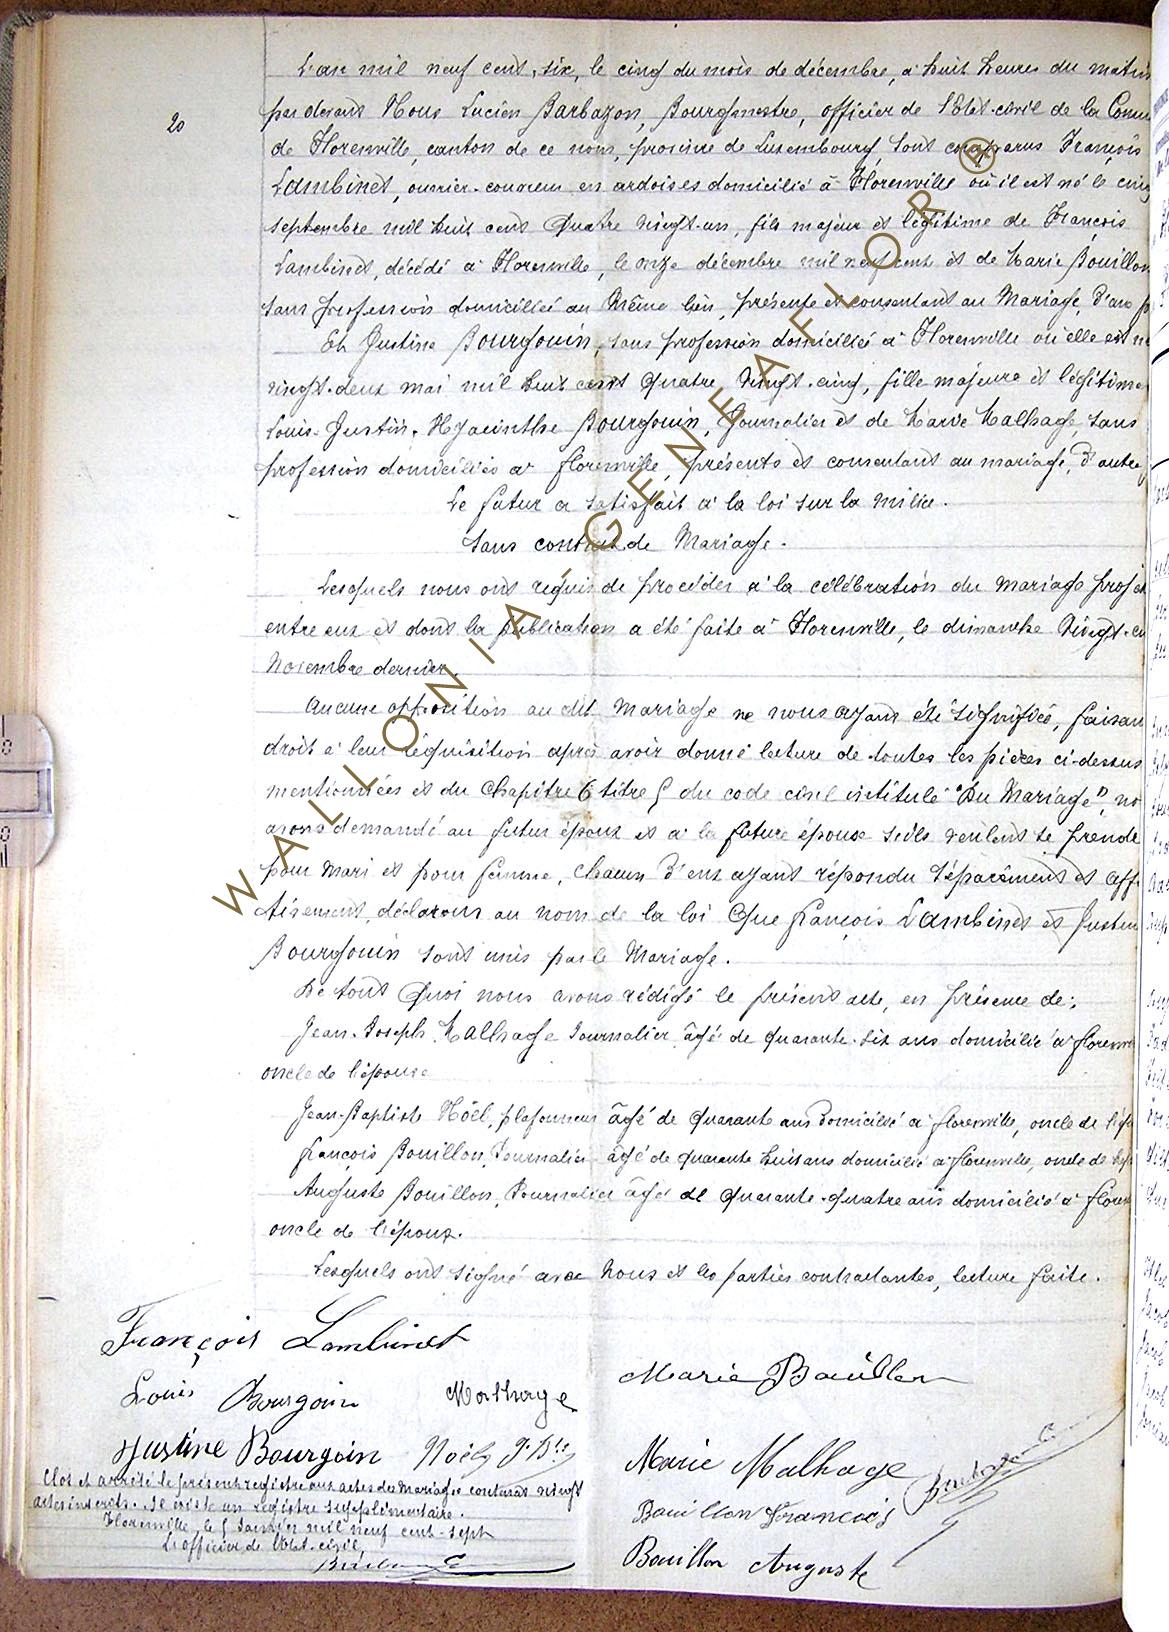 20
L'an mil neuf cent, six, le cinq du mois de décembre, à huit heures du matin
par devant Nous Lucien Barbazon, Bourgmestre, officier de l'Etat-civil de la Comm
de Florenville, canton de ce nom, province de Luxembourg, sont comparus François
Lambinet, ouvrier-couvreur en ardoises domicilié à Florenville où il est né le cinq
septembre mil huit cent Quatre vingt-un, fils majeur et légitime de François
Lambinet, décédé à Florenville, le onze décembre mil neuf cent et de Marie Bouillon
sans profession domiciliée au Même lieu, présente et consentant au Mariage, d'une p
Et Justine Bourgouin, sans profession domiciliée à Florenville où elle est n
vingt-deux mai mil huit cent Quatre Vingt-cinq, fille majeure et légitime
Louis-Justin-Hyacinthe Bourgouin, Journalier et de Marie Malhage, sans
profession domiciliés à florenville, présents et consentant au mariage, d'autre
Le futur a satisfait à la loi sur la milice.
Sans contrat de Mariage.
Lesquels nous ont requis de procéder à la célébration du mariage projet
entre eux et dont la publication a été faite à Florenville, le dimanche Vingt-cin
Novembre dernier.
Aucune opposition au dit Mariage ne nous ayant été signifiée, faisan
droit à leur réquisition après avoir donné lecture de toutes les pièces ci-dessus
mentionnées et du Chapitre 6 titre 5 du code civil intitulé "Du Mariage", no
avons demandé au futur époux et à la future épouse s'ils veulent se prendre
pour Mari et pour femme, chacun d'eux ayant répondu séparément et affir
tivement, déclarons au nom de la loi Que françois Lambinet et Justin
Bourgouin sont unis par le Mariage.
De tout Quoi nous avons rédigé le présent acte, en présence de:
Jean-Joseph Malhage Journalier âgé de quarante-six ans domicilié à florenvi
oncle de l'épouse
Jean-Baptiste Noël, plafonneur âgé de quarante ans domicilié à florenville, oncle de l'épo
françois Bouillon, Journalier âgé de quarante huit ans domicilié à florenville, oncle de l'ép
Auguste Bouillon, Journalier âgé de Quarante-quatre ans domicilié à floren
oncle de l'époux.
Lesquels ont signé avec Nous et les parties contractantes, lecture faite.
François Lambinet
Marie Bouillon
Louis Bourgoin Malhage
Justine Bourgoin Noël J Bte
Marie Malhage
Bouillon François
Bouillon Auguste
Clos et arrêté le présent registre aux actes de Mariages contenant vingt
actes inscrits. Il existe un registre supplémentaire.
Florenville, le 5 Janvier mil neuf cent-sept
L'officier de l'Etat-civil,
WALLONIA GENEAFLOR ®